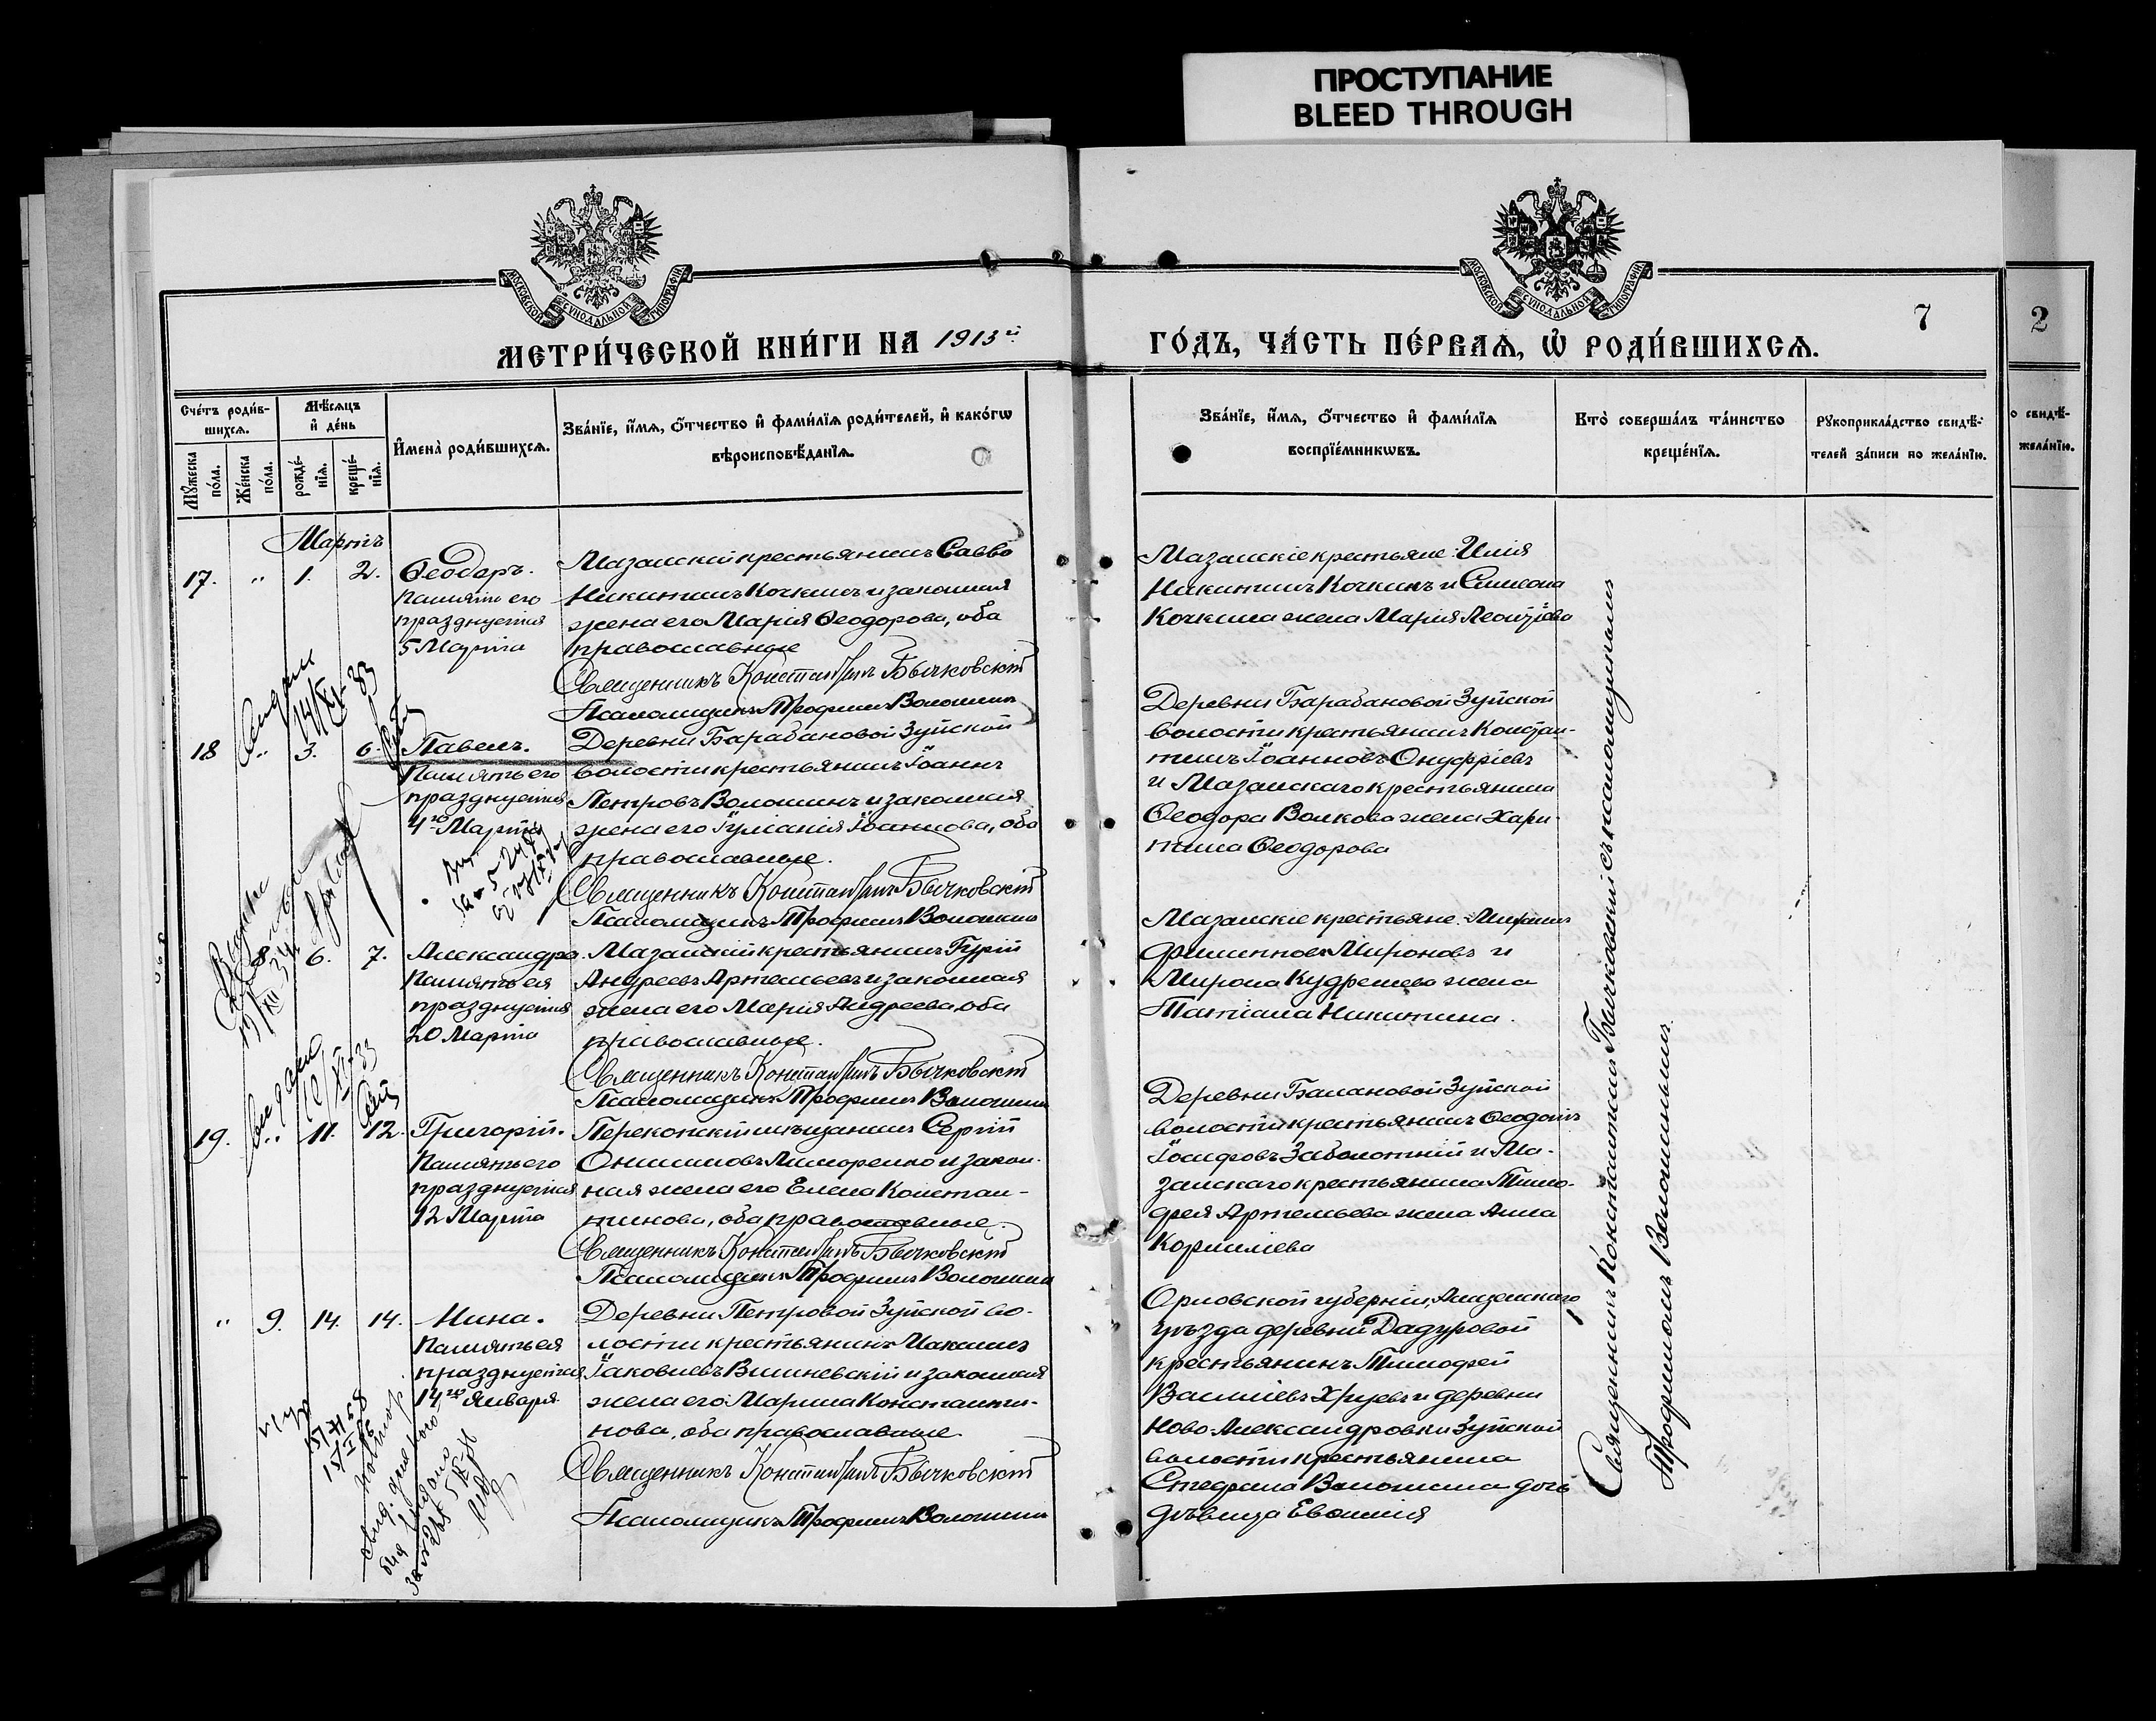 ПРОСТУПАНИЕ
BLEED THROUGH
МОСКОВСКОЙ СУНОДАЛЬНОЙ ТИПОГРАФІИ
МОСКОВСКОЙ СУНОДАЛЬНОЙ ТИПОГРАФІИ
7
2
МЕТРИ́ЧЕСКОЙ КНИ́ГИ НА 1913й
ГО́ДЪ, ЧА́СТЬ ПЕ́РВАѦ, Ѡ҆ РОДИ́ВШИХСѦ.
Сче́тъ роди́в-
шихсѧ.
Мѣ́сѧцъ
и҆ де́нь
Мꙋ́жеска
по́ла.
Же́нска
по́ла.
рожде́-
нїѧ.
креще́-
нїѧ.
И҆мена̀ роди́вшихсѧ.
Зва́нїе, и҆́мѧ, ѻ҆́тчество и҆ фами́лїѧ роди́телей, и҆ како́гѡ
вѣроисповѣ́данїѧ.
Зва́нїе, и҆́мѧ, ѻ҆́тчество и҆ фами́лїѧ
воспрїе́мникѡвъ.
Кто̀ соверша́лъ та́инство
креще́нїѧ.
Рꙋкоприкла́дство свидѣ́-
телей за́писи по жела́нїю.
о свидѣ́-
жела́нїю.
Мартъ
17. " 1. 2. Ѳеодоръ.
Память его
празднуется
5 Марта
Мазанскій крестьянинъ Савва
Никитинъ Кочкинъ и законная
жена его Марія Ѳеодорова, оба
православные
Священникъ Константинъ Бычковскій
Псаломщикъ Трофимъ Волошинъ
Мазанскіе крестьяне: Илія
Никитинъ Кочкинъ и Симеона
Кочкина жена Марія Леонтіева
18 " 3. 6. Павелъ.
Память его
празднуется
4го Марта
Деревни Барабановой Зуйской
волости крестьянинъ Іоаннъ
Петровъ Волошинъ и законная
жена его Іуліанія Іоаннова, оба
православные.
Священникъ Константинъ Бычковскій
Псаломщикъ Трофимъ Волошинъ
Деревни Барабановой Зуйской
волости крестьянинъ Констан-
тинъ Іоанновъ Онуфріевъ
и Мазанскаго крестьянина
Ѳеодора Волкова жена Хари-
тина Ѳеодорова
8. 6. 7. Александра.
Память ея
празднуется
20 Марта
Мазанскій крестьянинъ Гурій
Андреевъ Артемьевъ и законная
жена его Марія Андреева, оба
православные.
Священникъ Константинъ Бычковскій
Псаломщикъ Трофимъ Волошинъ
Мазанскіе крестьяне:
Филипповъ Мироновъ и
Мирона Кудрешева жена
Татіана Никитина.
19. " 11. 12. Григорій.
Память его
празднуется
12 Марта
Перекопскій мѣщанинъ Сергій
Онисимовъ Лиморенко и закон-
ная жена его Елена Констан-
тинова, оба православные.
Священникъ Константинъ Бычковскій
Псаломщикъ Трофимъ Волошинъ
Деревни Балановой Зуйской
волости крестьянинъ
Іосифовъ Заболотній и Ма-
занскаго крестьянина Тимо-
фея Артемьева жена Анна
Корнилiева
" 9. 14. 14. Нина.
Память ея
празднуется
14го Января
Деревни Петровой Зуйской во-
лости крестьянинъ
Іаковлевъ Вишневскій и законная
жена его Марина Константи-
нова, оба православные.
Священникъ Константинъ Бычковскій
Псаломщикъ Трофимъ Волошинъ
Орловской губерніи,
уѣзда деревни Дадуровой
крестьянинъ Тимофей
Васильевъ и деревни
Ново Александровки Зуйской
волости крестьянина
Стефана Волошина дочь
дѣвица Евѳимія
Священникъ Константинъ Бычковскій съ псаломщикомъ
Трофимомъ Волошинымъ.